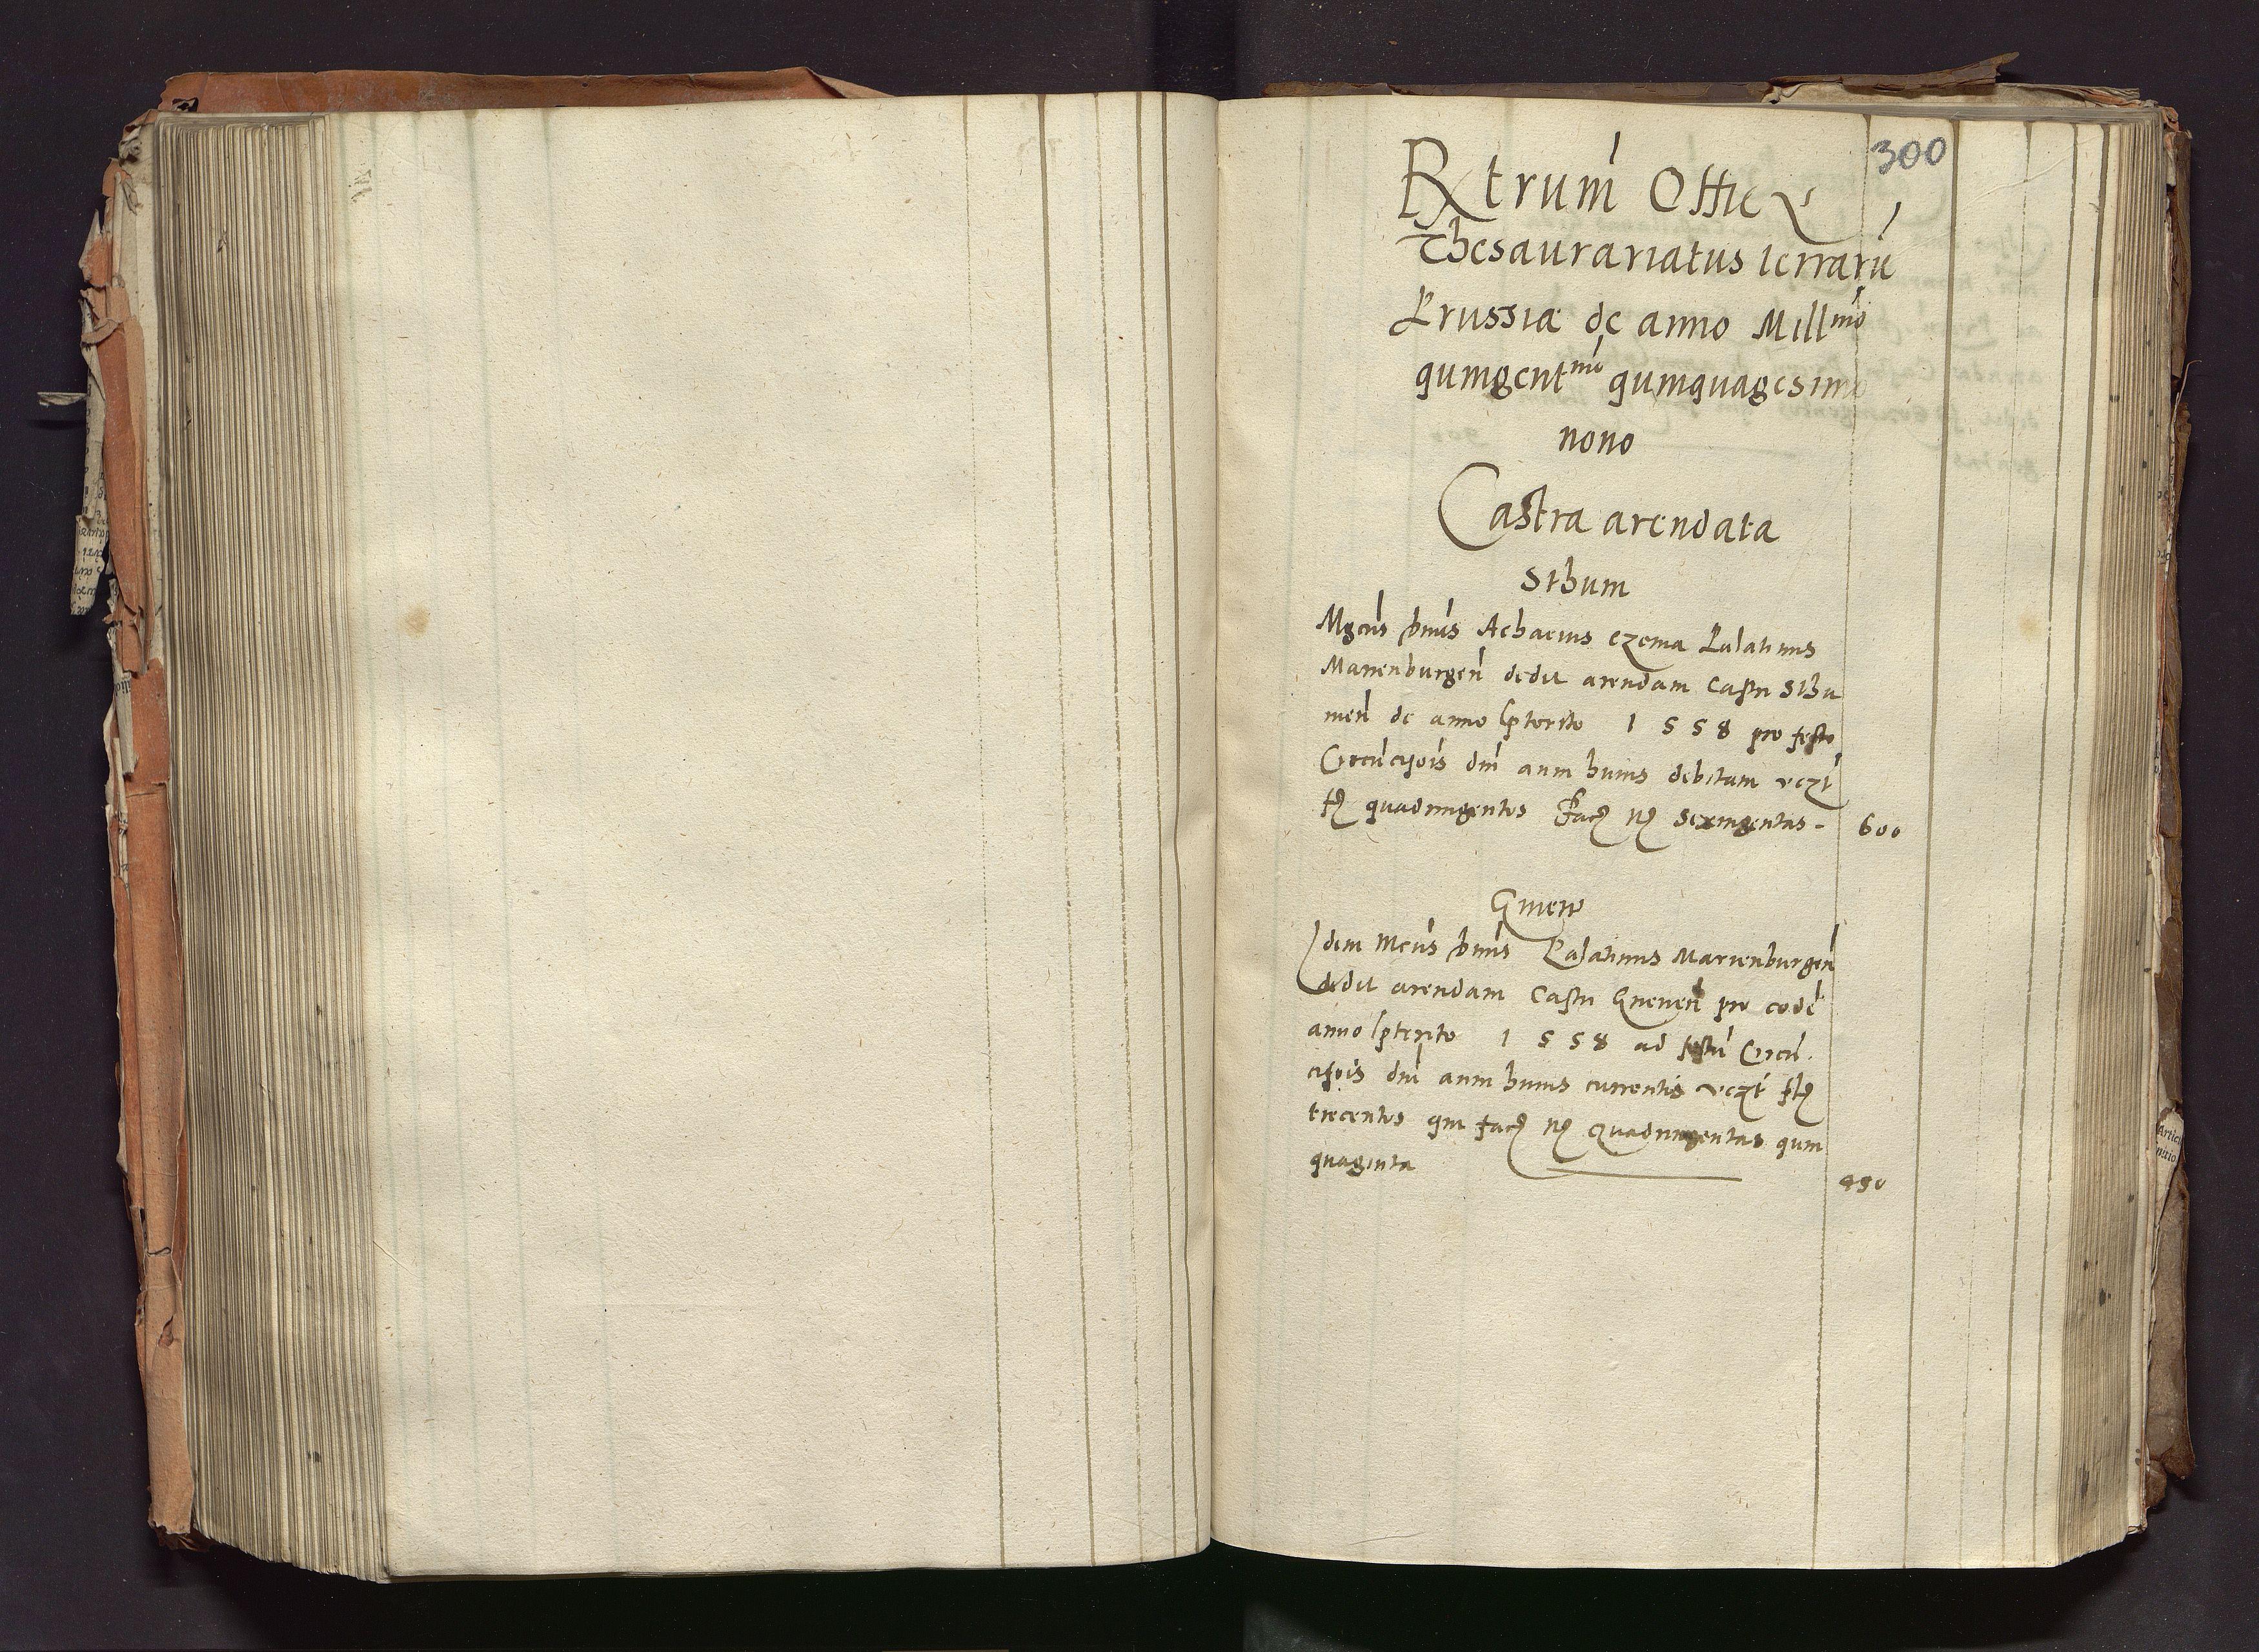 300
Rxtrum Offic
Thesaurariatus terraru
Prussiæ de anno Mill mo
quingent mo quinquagesimo
nono
Castra arendata
Sthum
Mgcus dnus Achacius Czema Palatinus
Marienburgen dedit arendam Castri Sthu
men de anno pterito 1558 pro festo
Circucisiois dni anni huius debitam vczt
fl quadringentos fac mr sexingentas - 600
Gniew
Idem Mcus dnus Palatinus Marienburgen
dedit arendam Castri Gneven pro eode
anno pterito 1558 ad festu Circu
cisiois dni anni huius currentis vczt fl
trecentos qui fac mr quadringentas quin
quaginta 450